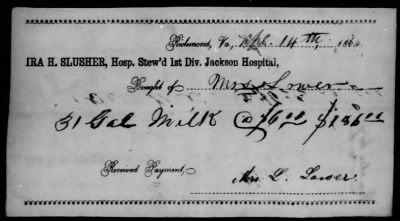 Richmond, Va, Apl. 14th, 1864
IRA H. SLUSHER, Hosp. Stew'd 1st Div. Jackson Hospital,
Bought of Mrs Lower
31 Gal Milk @ $6.00 $186.00
Received Payment,
Mrs L. Lower